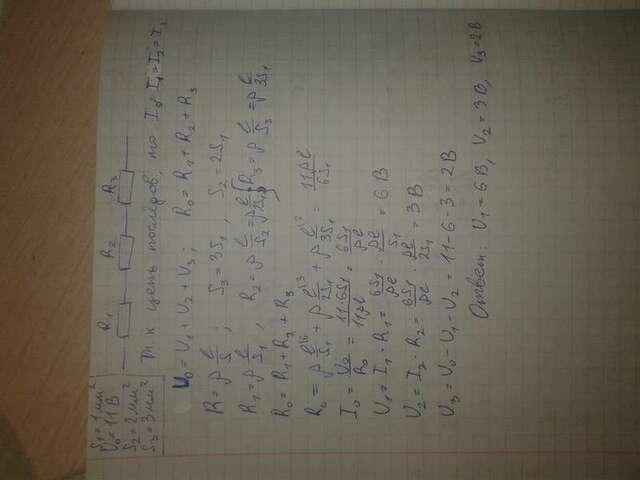 S₁ = 1 мм²
U₀ = 11 В
S₂ = 2 мм²
S₃ = 3 мм²
R₁ R₂ R₃
Т к цепь последов, то I₀ = I₁ = I₂ = I₃
U₀ = U₁ + U₂ + U₃ ; R₀ = R₁ + R₂ + R₃
R = ρ l/S ; S₃ = 3S₁ , S₂ = 2S₁
R₁ = ρ l/S₁ , R₂ = ρ l/S₂ = ρ l/2S₁ , R₃ = ρ l/S₃ = ρ l/3S₁
R₀ = R₁ + R₂ + R₃
R₀ = ρ l\6/S₁ + ρ l\3/2S₁ + ρ l\2/3S₁ = 11ρl/6S₁
I₀ = U₀/R₀ = 11·6S₁/11ρl = 6S₁/ρl
U₁ = I₁ · R₁ = 6S₁/ρl · ρl/S₁ = 6 В
U₂ = I₂ · R₂ = 6S₁/ρl · ρl/2S₁ = 3 В
U₃ = U₀ - U₁ - U₂ = 11 - 6 - 3 = 2 В
Ответ: U₁ = 6 В, U₂ = 3 В, U₃ = 2 В